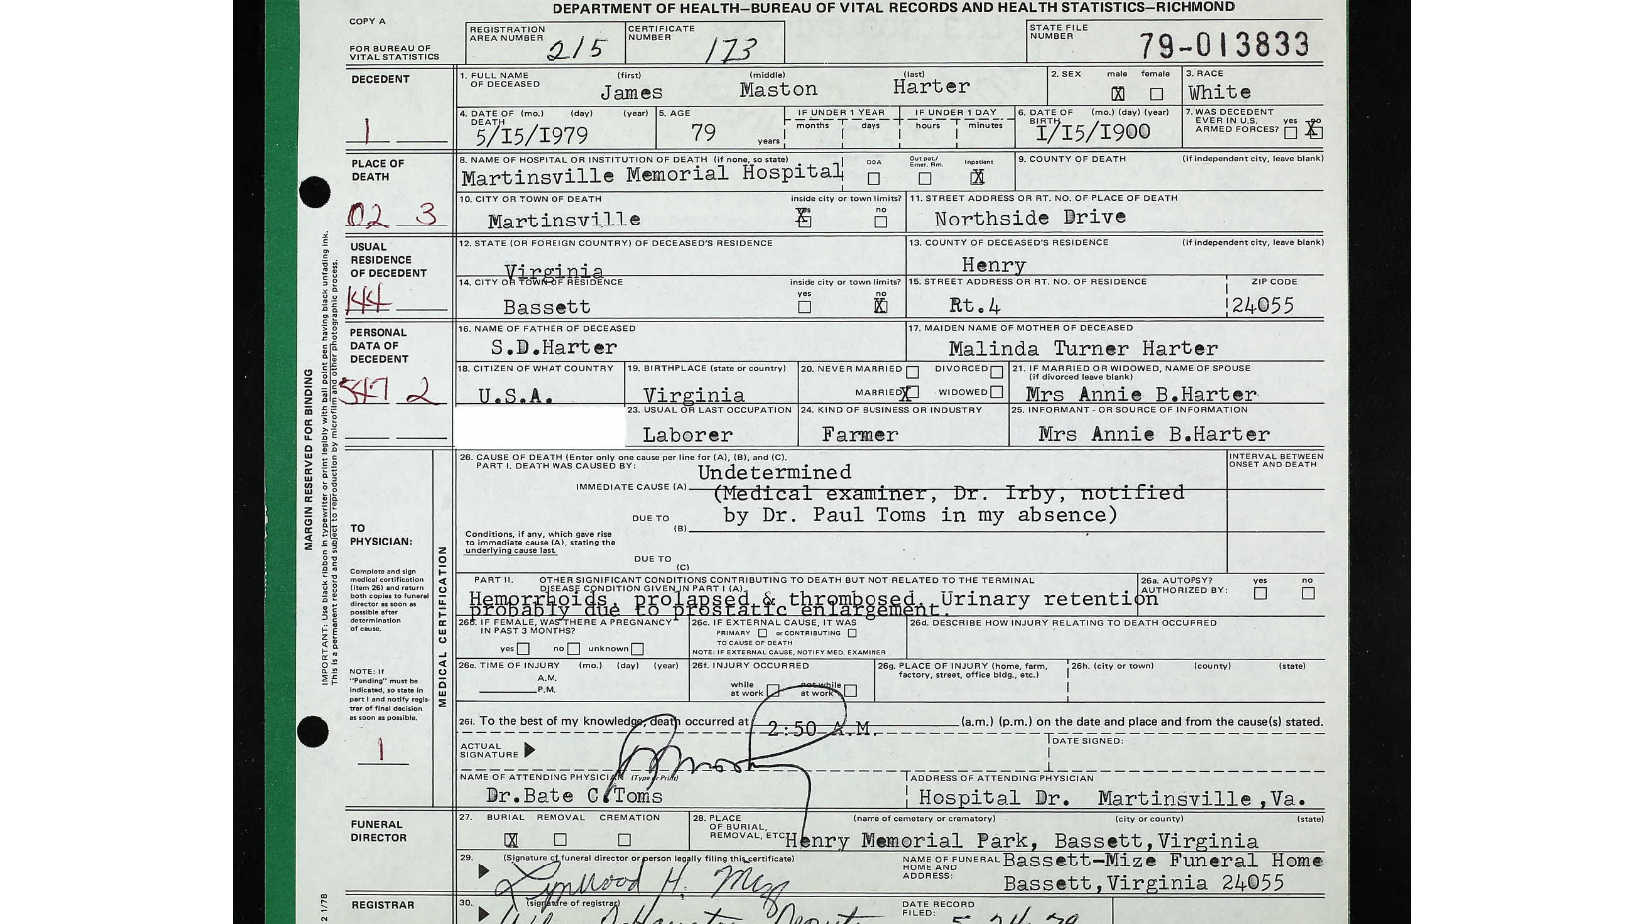 DEPARTMENT OF HEALTH—BUREAU OF VITAL RECORDS AND HEALTH STATISTICS—RICHMOND
COPY A
FOR BUREAU OF VITAL STATISTICS
REGISTRATION AREA NUMBER 215
CERTIFICATE NUMBER 173
STATE FILE NUMBER 79-013833
DECEDENT
1. FULL NAME OF DECEASED (first) (middle) (last)
James Maston Harter
2. SEX male female X
3. RACE White
1
4. DATE OF DEATH (mo.) (day) (year) 5/I5/1979
5. AGE 79 years
IF UNDER 1 YEAR months days
IF UNDER 1 DAY hours minutes
6. DATE OF BIRTH (mo.) (day) (year) I/I5/1900
7. WAS DECEDENT EVER IN U.S. ARMED FORCES? yes no X
PLACE OF DEATH
8. NAME OF HOSPITAL OR INSTITUTION OF DEATH (if none, so state)
Martinsville Memorial Hospital
DOA Out pat./ Emer. Rm. Inpatient X
9. COUNTY OF DEATH (if independent city, leave blank)
02 3
10. CITY OR TOWN OF DEATH inside city or town limits? yes no X
Martinsville
11. STREET ADDRESS OR RT. NO. OF PLACE OF DEATH
Northside Drive
USUAL RESIDENCE OF DECEDENT
12. STATE (OR FOREIGN COUNTRY) OF DECEASED'S RESIDENCE
Virginia
13. COUNTY OF DECEASED'S RESIDENCE (if independent city, leave blank)
Henry
144
14. CITY OR TOWN OF RESIDENCE inside city or town limits? yes no X
Bassett
15. STREET ADDRESS OR RT. NO. OF RESIDENCE ZIP CODE
Rt.4 24055
PERSONAL DATA OF DECEDENT
16. NAME OF FATHER OF DECEASED
S.D.Harter
17. MAIDEN NAME OF MOTHER OF DECEASED
Malinda Turner Harter
547 2
18. CITIZEN OF WHAT COUNTRY
U.S.A.
19. BIRTHPLACE (state or country)
Virginia
20. NEVER MARRIED DIVORCED
MARRIED X WIDOWED
21. IF MARRIED OR WIDOWED, NAME OF SPOUSE (if divorced leave blank)
Mrs Annie B.Harter
23. USUAL OR LAST OCCUPATION
Laborer
24. KIND OF BUSINESS OR INDUSTRY
Farmer
25. INFORMANT - OR SOURCE OF INFORMATION
Mrs Annie B.Harter
MARGIN RESERVED FOR BINDING
IMPORTANT: Use black ribbon in typewriter or print legibly with ball point pen having black unfading ink.
This is a permanent record and subject to reproduction by microfilm and other photographic process.
MEDICAL CERTIFICATION
26. CAUSE OF DEATH (Enter only one cause per line for (A), (B), and (C).
PART I. DEATH WAS CAUSED BY:
INTERVAL BETWEEN ONSET AND DEATH
IMMEDIATE CAUSE (A) Undetermined
(Medical examiner, Dr. Irby, notified
DUE TO (B) by Dr. Paul Toms in my absence)
Conditions, if any, which gave rise to immediate cause (A), stating the underlying cause last.
DUE TO (C)
TO PHYSICIAN:
Complete and sign medical certification (item 26) and return both copies to funeral director as soon as possible after determination of cause.
PART II. OTHER SIGNIFICANT CONDITIONS CONTRIBUTING TO DEATH BUT NOT RELATED TO THE TERMINAL DISEASE CONDITION GIVEN IN PART I (A)
Hemorrhoids, prolapsed & thrombosed, Urinary retention
probably due to prostatic enlargement.
26a. AUTOPSY? AUTHORIZED BY: yes no
26b. IF FEMALE, WAS THERE A PREGNANCY IN PAST 3 MONTHS?
yes no unknown
26c. IF EXTERNAL CAUSE, IT WAS
PRIMARY or CONTRIBUTING
TO CAUSE OF DEATH
NOTE: IF EXTERNAL CAUSE, NOTIFY MED. EXAMINER
26d. DESCRIBE HOW INJURY RELATING TO DEATH OCCURRED
NOTE: If "Pending" must be indicated, so state in part I and notify registrar of final decision as soon as possible.
26e. TIME OF INJURY (mo.) (day) (year)
A.M.
P.M.
26f. INJURY OCCURRED
while at work not while at work
26g. PLACE OF INJURY (home, farm, factory, street, office bldg., etc.)
26h. (city or town) (county) (state)
26i. To the best of my knowledge, death occurred at 2:50 A.M. (a.m.) (p.m.) on the date and place and from the cause(s) stated.
1
ACTUAL SIGNATURE
DATE SIGNED:
NAME OF ATTENDING PHYSICIAN (Type or Print)
Dr.Bate C.Toms
ADDRESS OF ATTENDING PHYSICIAN
Hospital Dr. Martinsville,Va.
FUNERAL DIRECTOR
27. BURIAL REMOVAL CREMATION
X
28. PLACE OF BURIAL, REMOVAL, ETC. (name of cemetery or crematory) (city or county) (state)
Henry Memorial Park, Bassett,Virginia
29. (Signature of funeral director or person legally filing this certificate)
Lynwood H.
NAME OF FUNERAL HOME AND ADDRESS:
Bassett-Mize Funeral Home
Bassett,Virginia 24055
2 1/78
REGISTRAR
30. (signature of registrar)
Deputy
DATE RECORD FILED: 5-24-79